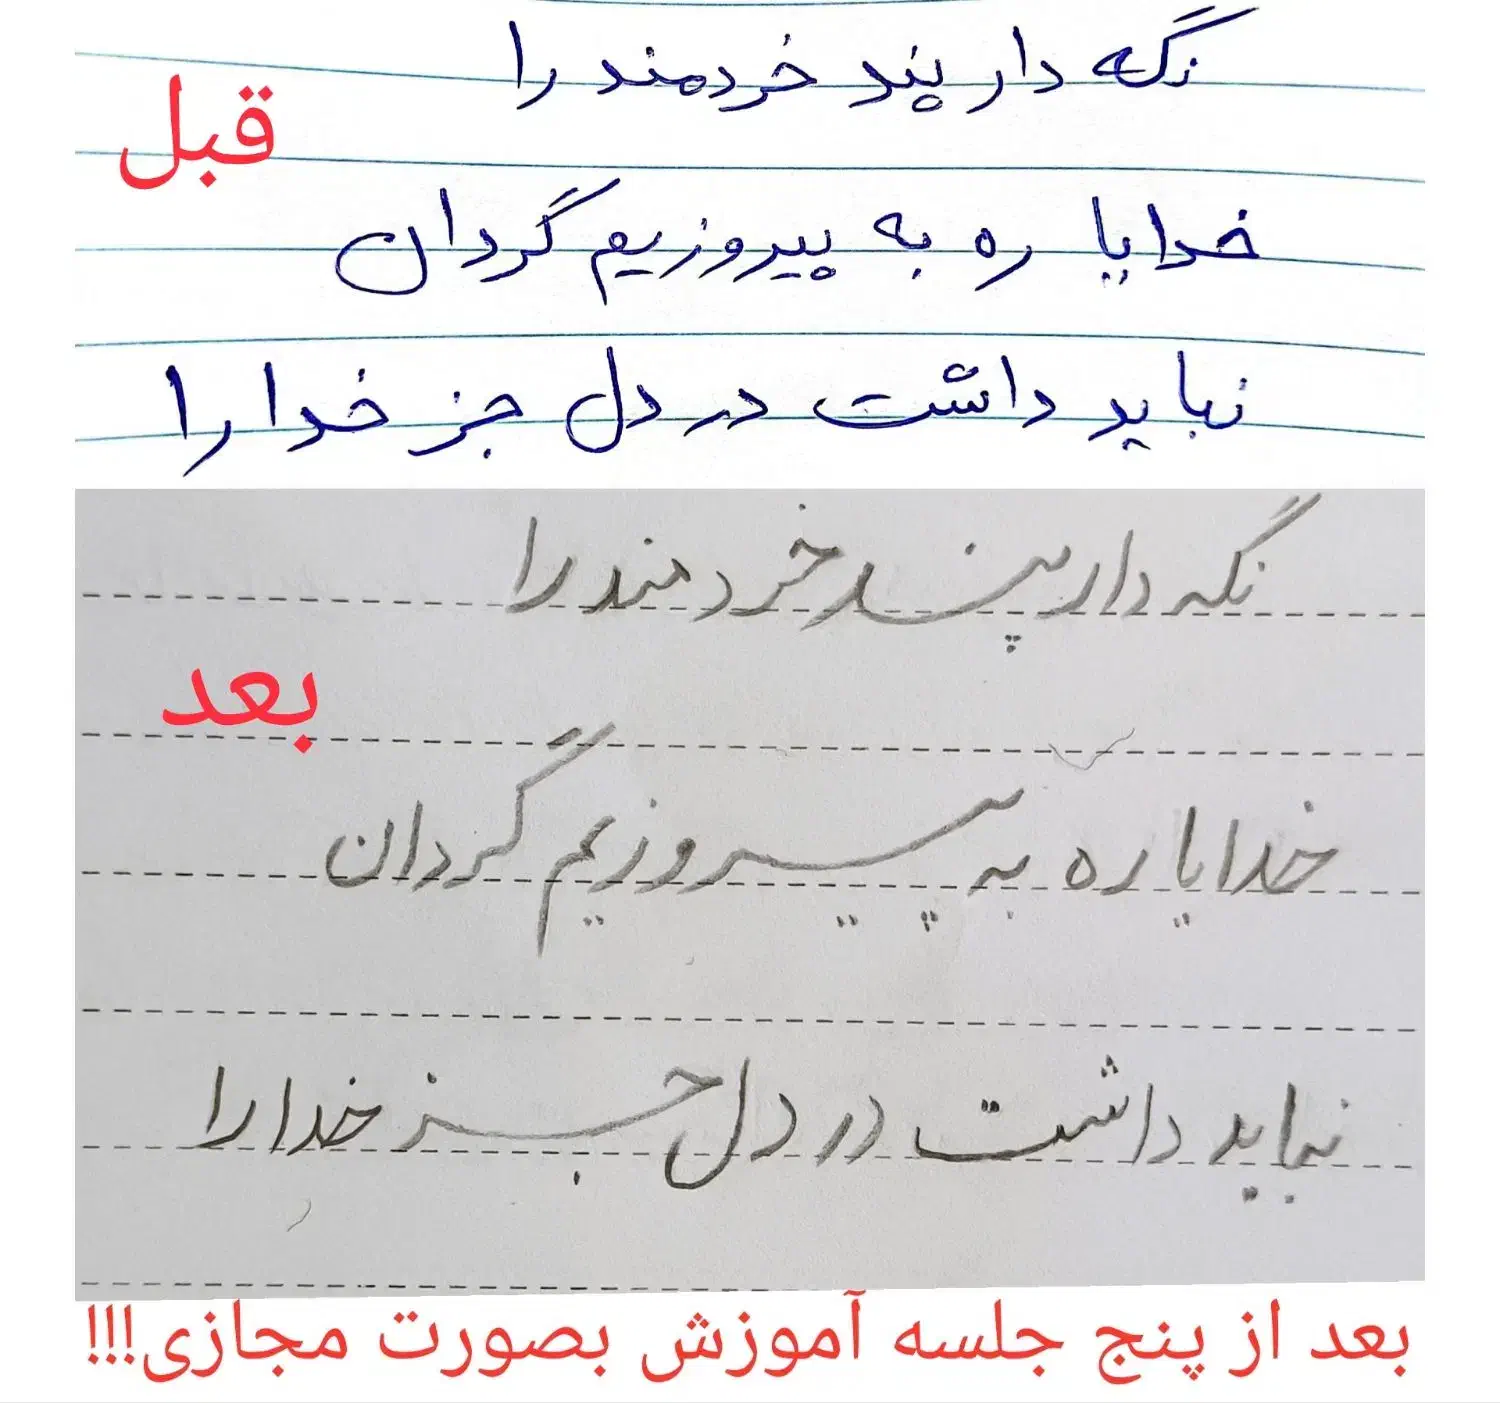 نگه دار پند خردمند را
قبل
خدایا ره به پیروزیم گردان
نباید داشت در دل جز خدا را
نگه دار پند خردمند را
بعد
خدایا ره به پیروزیم گردان
نباید داشت در دل جز خدا را
بعد از پنج جلسه آموزش بصورت مجازی!!!